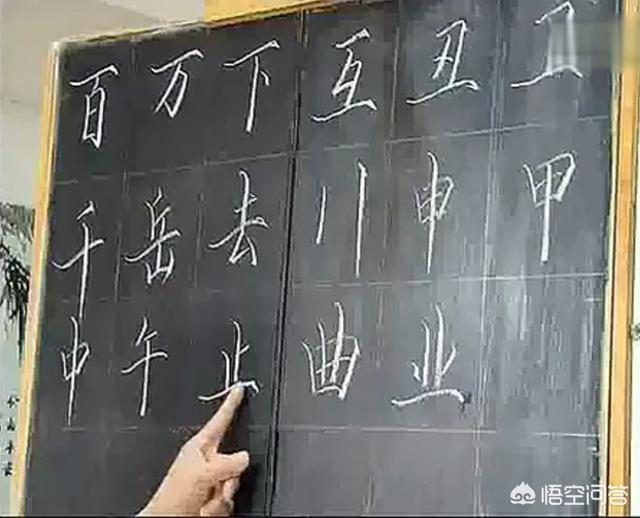 百万下互丑
千岳去刂申甲
中午止曲业
悟空问答